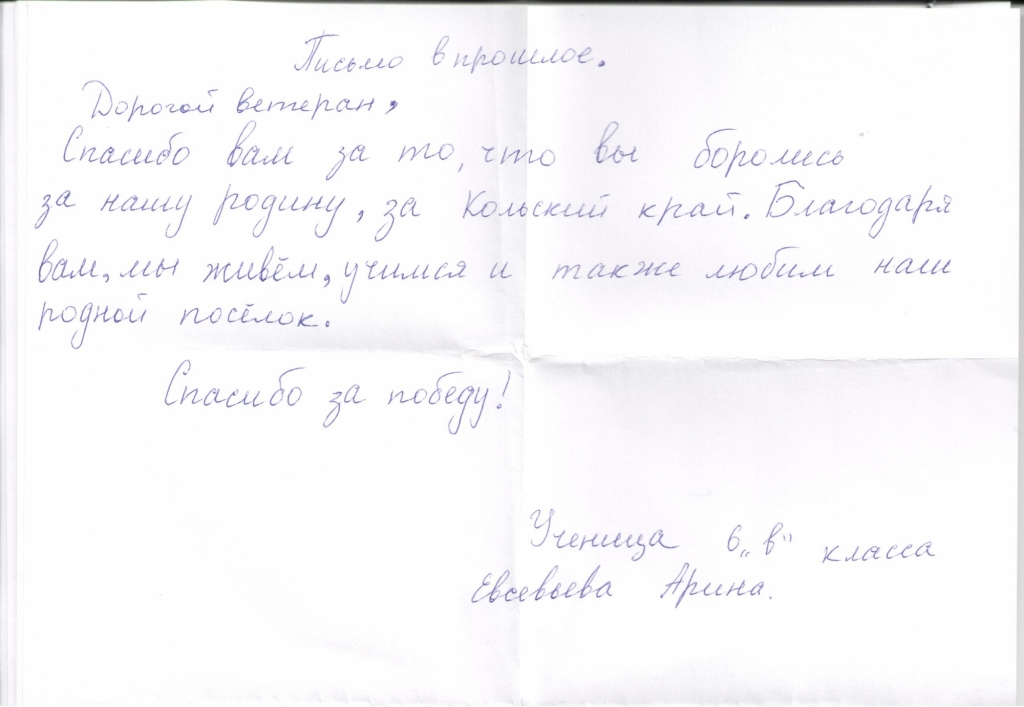 Письмо в прошлое.
Дорогой ветеран,
Спасибо вам за то, что вы боролись
за нашу родину, за Кольский край. Благодаря
вам, мы живём, учимся и также любим наш
родной посёлок.
Спасибо за победу!
Ученица 6 „в“ класса
Евсевьева Арина.